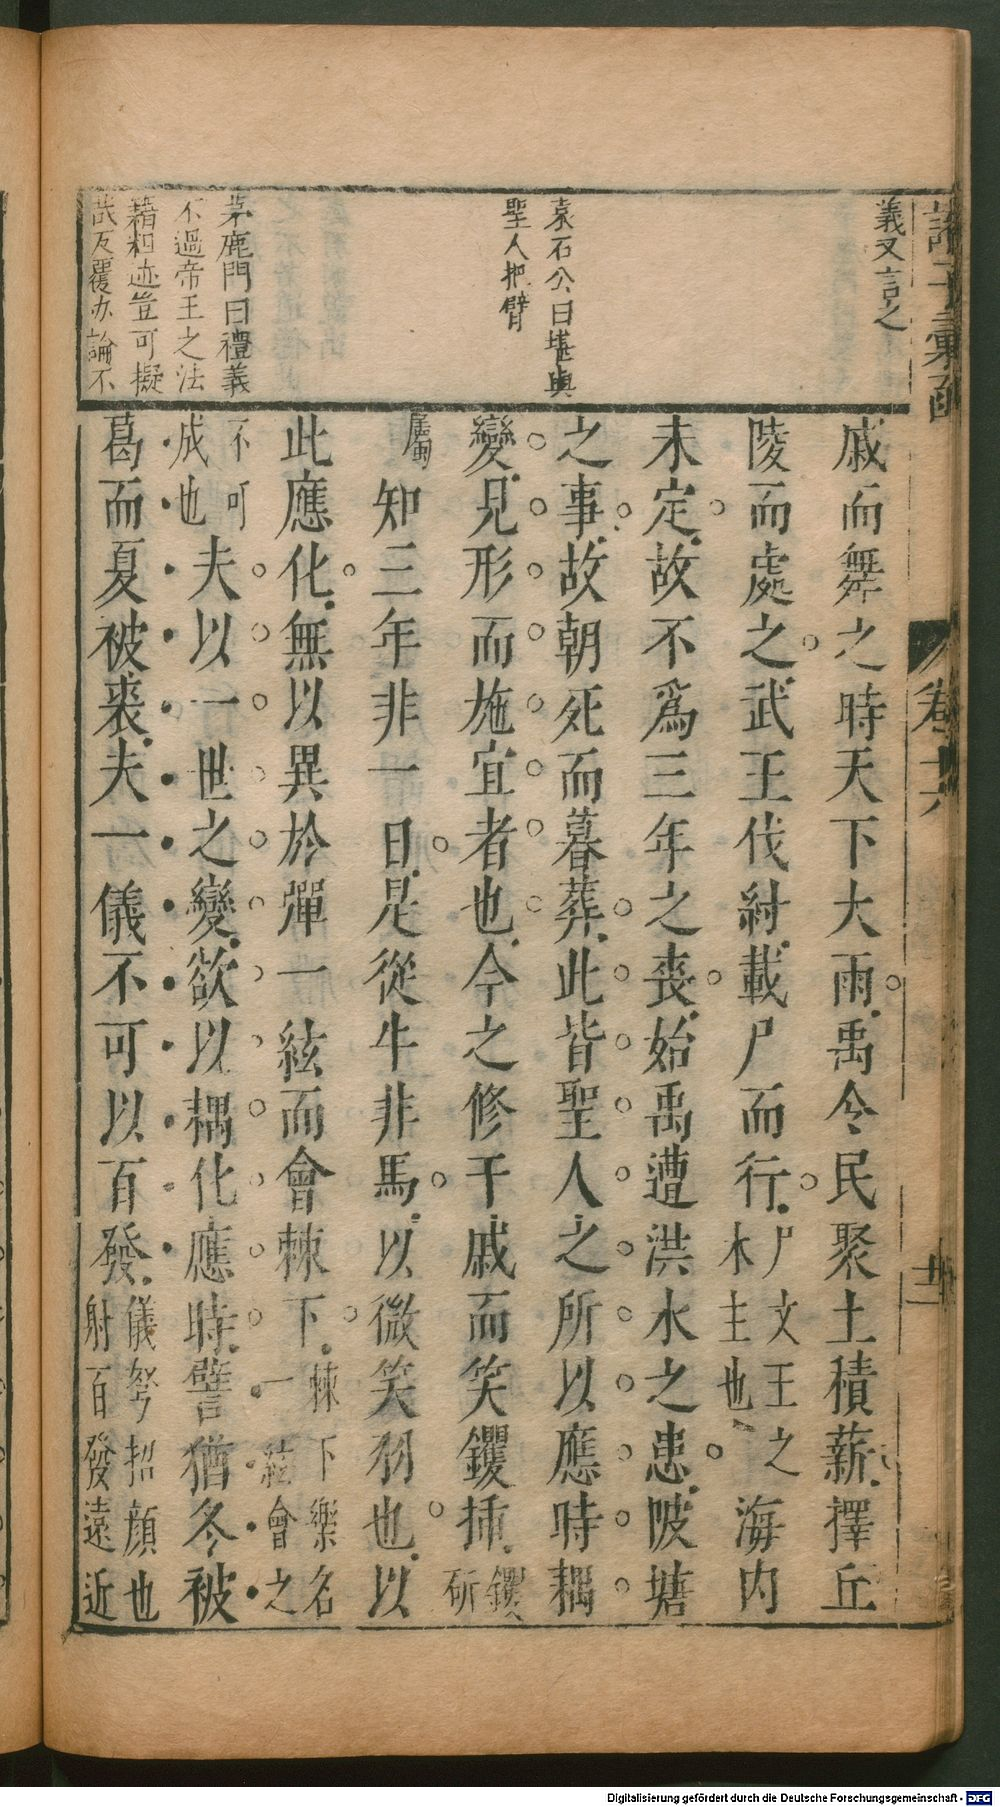 義又言之
袁石公曰堪與
聖人把臂
茅鹿門曰禮義
不過帝王之法
籍粗迹豈可擬
哉反覆办論不
戚而舞之時天下大雨禹令民聚土積薪擇丘
陵而處之武王伐紂載尸而行尸文王之木主也海内
未定故不爲三年之喪始禹遭洪水之患陂塘
之事故朝死而暮葬此皆聖人之所以應時耦
變見形而施宜者也今之修干戚而笑钁插钁斫
屬知三年非一日是從牛非馬以徵笑羽也以
此應化無以異於彈一絃而會棘下棘下樂名一絃會之
不可成也夫以一世之變欲以耦化應時譬猶冬被
葛而夏被裘夫一儀不可以百發儀弩招顔也射百發遠近
卷十六
Digitalisierung gefördert durch die Deutsche Forschungsgemeinschaft - DFG